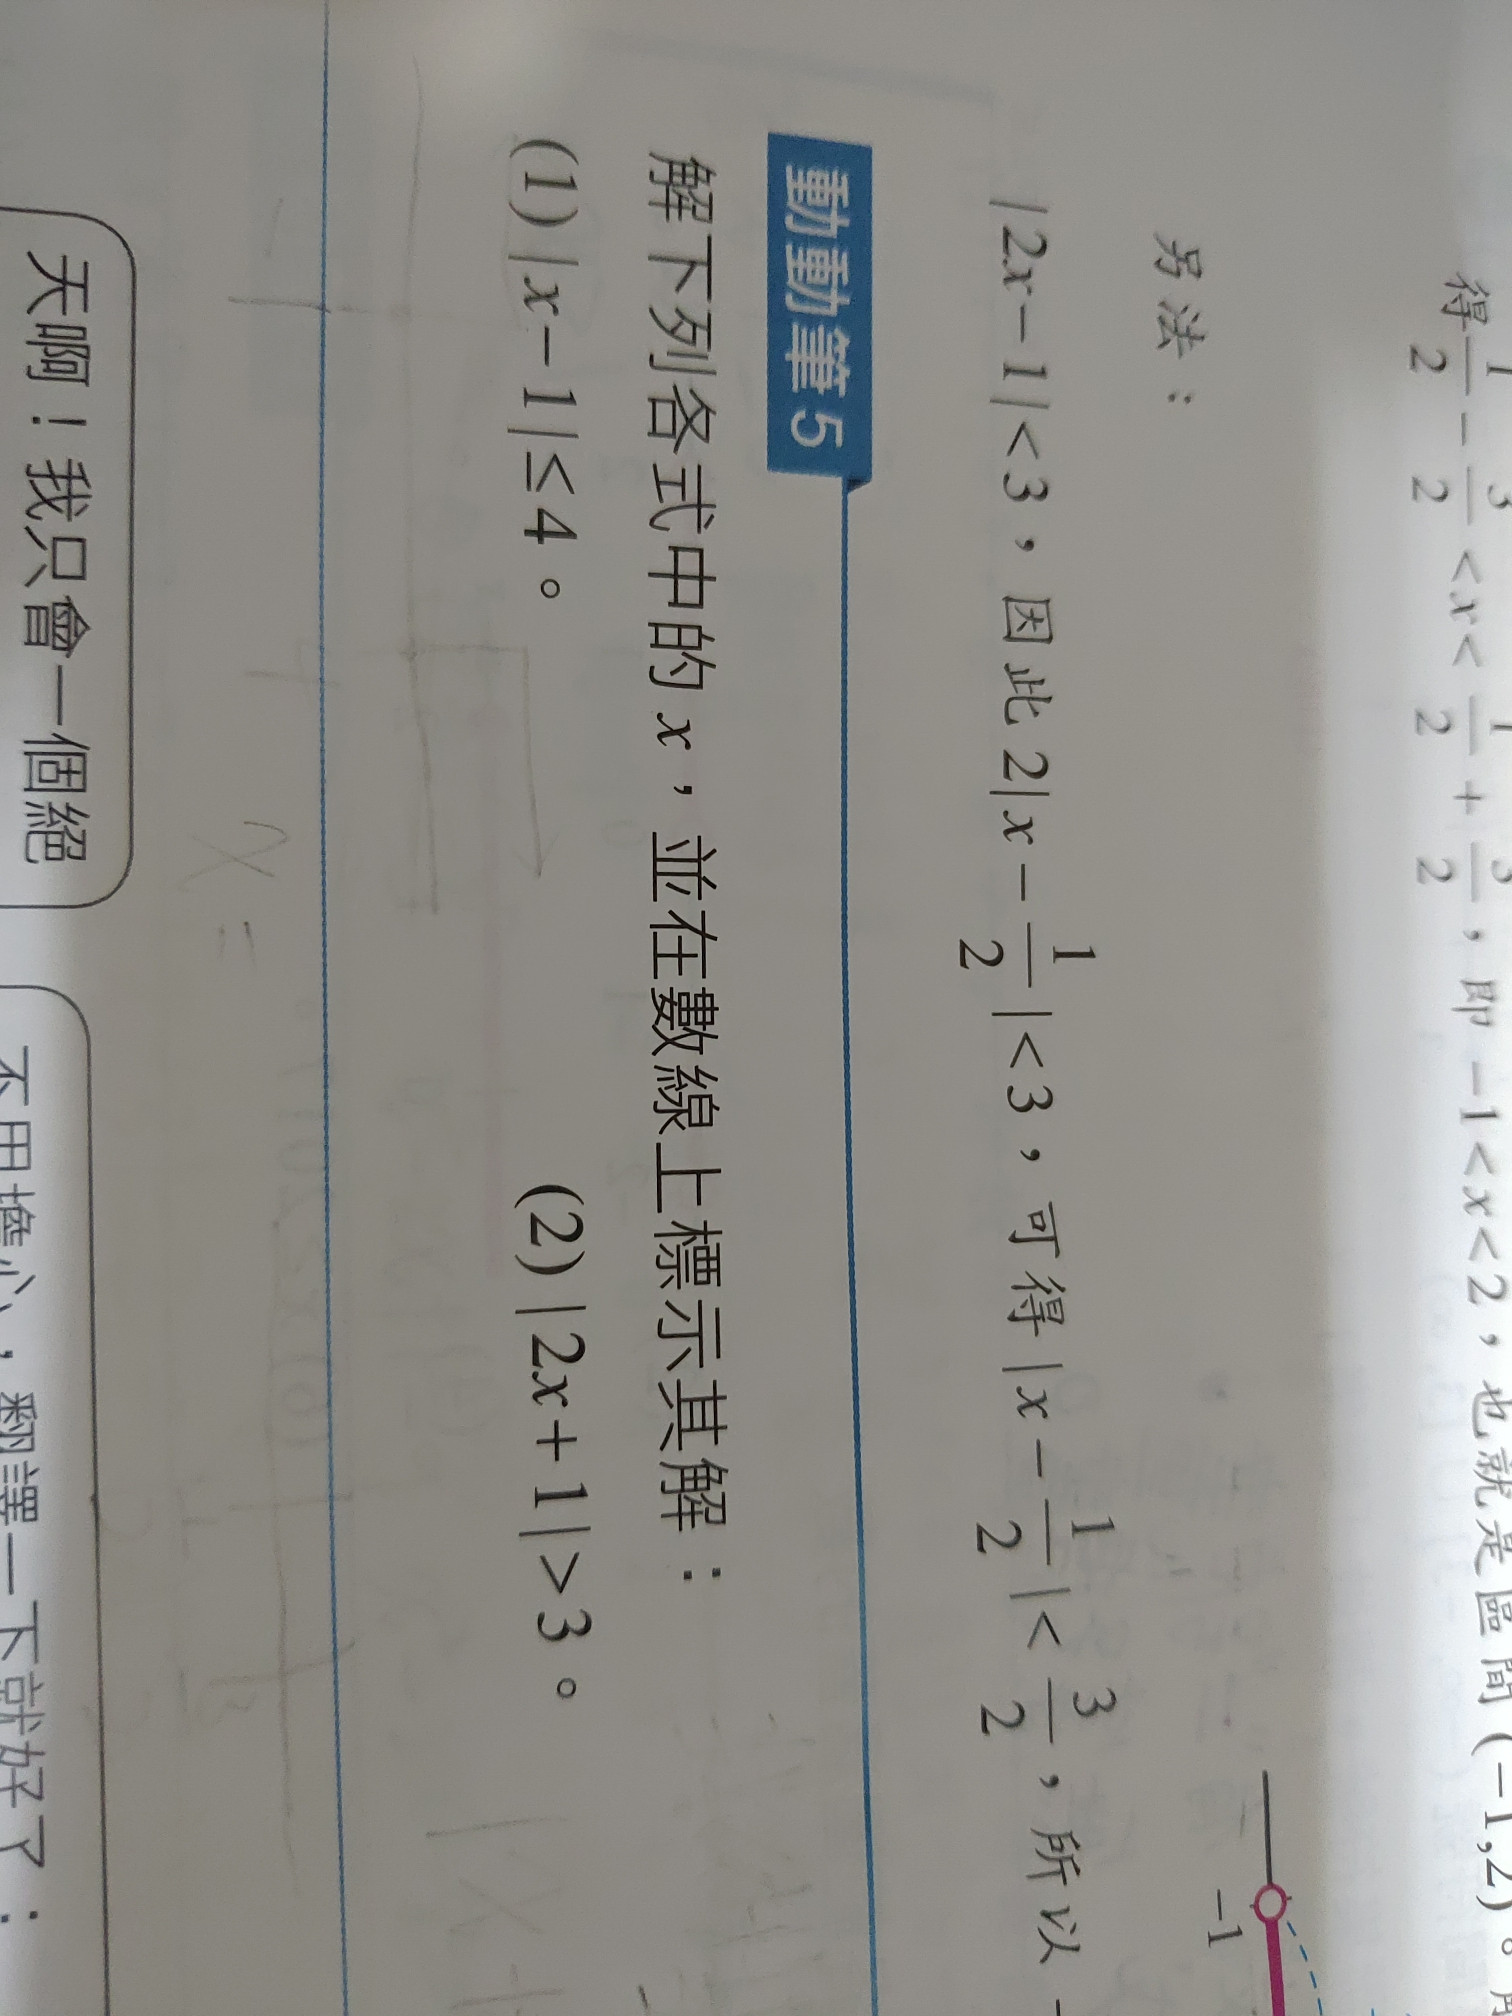 得 1/2 - 3/2 < x < 1/2 + 3/2,即 -1 < x < 2,也就是區間 (-1,2)。
另法:
-1
|2x-1|<3,因此 2|x-1/2|<3,可得 |x-1/2|<3/2,所以
動動筆 5
解下列各式中的 x,並在數線上標示其解:
(1) |x-1|≤4。 (2) |2x+1|>3。
x =
天啊!我只會一個絕
不用擔心,翻譯一下就好了: